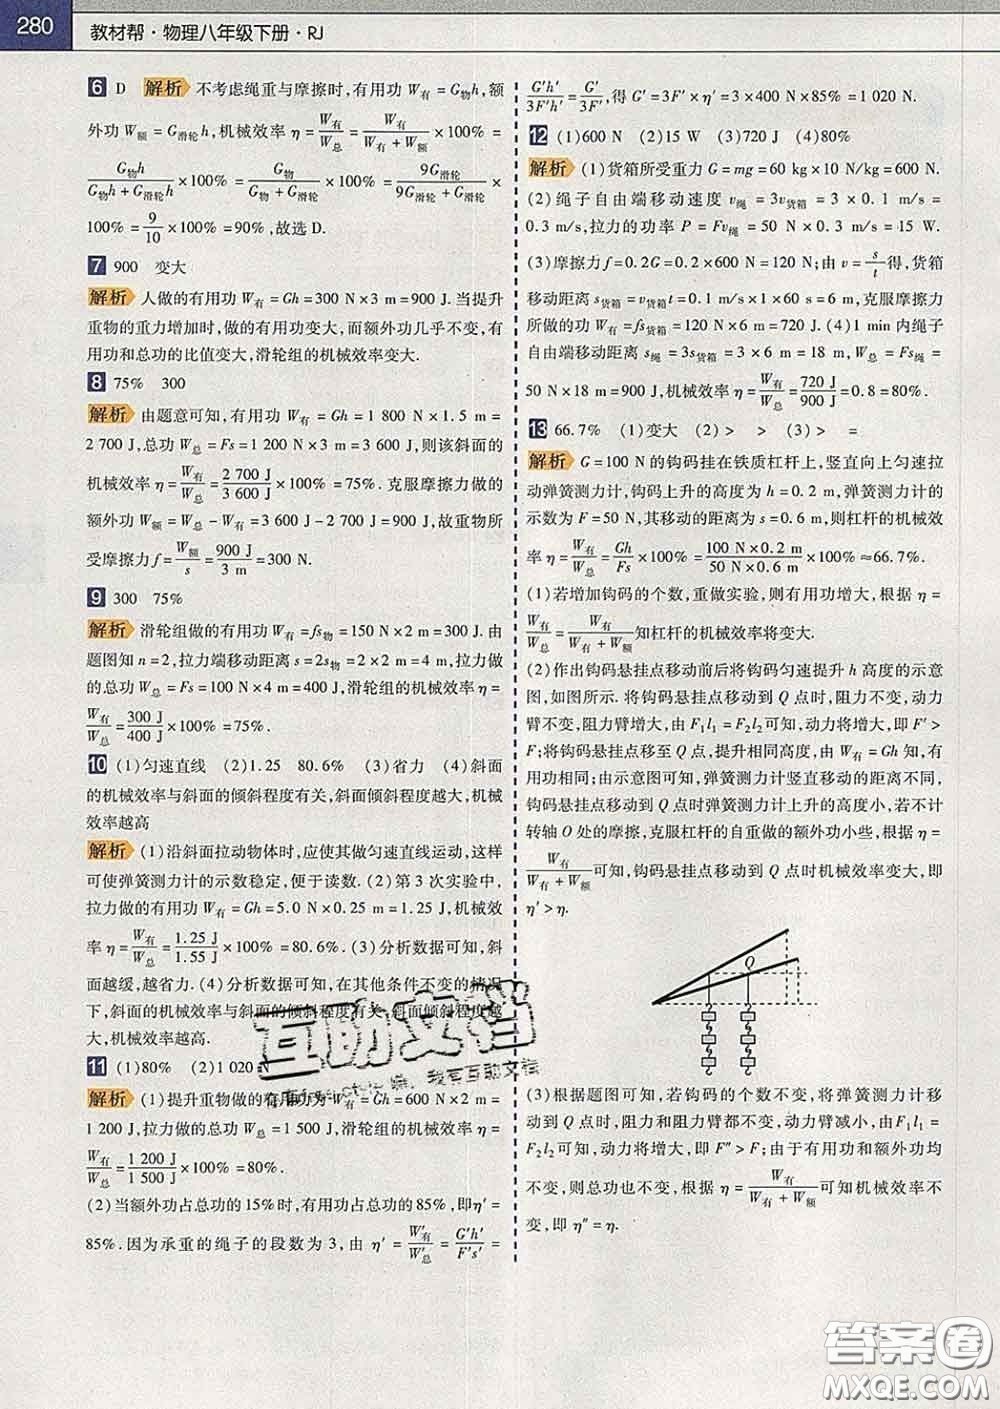 280 教材帮·物理八年级下册·RJ
6 D 解析 不考虑绳重与摩擦时,有用功 W有 = G物h,额
外功 W额 = G滑轮h,机械效率 η = W有/W总 = W有/(W有 + W额) × 100% =
G物h/(G物h + G滑轮h) × 100% = G物/(G物 + G滑轮) × 100% = 9G滑轮/(9G滑轮 + G滑轮) ×
100% = 9/10 × 100% = 90%,故选 D.
7 900 变大
解析 人做的有用功 W有 = Gh = 300 N × 3 m = 900 J. 当提升
重物的重力增加时,做的有用功变大,而额外功几乎不变,有
用功和总功的比值变大,滑轮组的机械效率变大.
8 75% 300
解析 由题意可知,有用功 W有 = Gh = 1 800 N × 1.5 m =
2 700 J,总功 W总 = Fs = 1 200 N × 3 m = 3 600 J,则该斜面的
机械效率 η = W有/W总 = 2 700 J/3 600 J = 75%. 克服摩擦力做的
额外功 W额 = W总 - W有 = 3 600 J - 2 700 J = 900 J,故重物所
受摩擦力 f = W额/s = 900 J/3 m = 300 N.
9 300 75%
解析 滑轮组做的有用功 W有 = fs物 = 150 N × 2 m = 300 J. 由
题图知 n = 2,拉力端移动距离 s = 2s物 = 2 × 2 m = 4 m,拉力做
的总功 W总 = Fs = 100 N × 4 m = 400 J,滑轮组的机械效率 η =
W有/W总 = 300 J/400 J × 100% = 75%.
10 (1)匀速直线 (2)1.25 80.6% (3)省力 (4)斜面
的机械效率与斜面的倾斜程度有关,斜面倾斜程度越大,机械
效率越高
解析 (1)沿斜面拉动物体时,应使其做匀速直线运动,这样
可使弹簧测力计的示数稳定,便于读数. (2)第 3 次实验中,
拉力做的有用功 W有 = Gh = 5.0 N × 0.25 m = 1.25 J,机械效
率 η = W有/W总 = 1.25 J/1.55 J × 100% = 80.6%. (3)分析数据可知,斜
面越缓,越省力. (4)分析数据可知,在其他条件不变的情况
下,斜面的机械效率与斜面的倾斜程度有关,斜面倾斜程度越
大,机械效率越高.
11 (1)80% (2)1 020 N
解析 (1)提升重物做的有用功为 W有 = Gh = 600 N × 2 m =
1 200 J,拉力做的总功 W总 = 1 500 J,滑轮组的机械效率 η =
W有/W总 = 1 200 J/1 500 J × 100% = 80%.
(2)当额外功占总功的 15% 时,有用功占总功的 85%,即 η′ =
85%. 因为承重的绳子的段数为 3,由 η′ = W′有/W′总 = G′h′/F′s′ =
G′h′/3F′h′ = G′/3F′,得 G′ = 3F′ × η′ = 3 × 400 N × 85% = 1 020 N.
12 (1)600 N (2)15 W (3)720 J (4)80%
解析 (1)货箱所受重力 G = mg = 60 kg × 10 N/kg = 600 N.
(2)绳子自由端移动速度 v绳 = 3v货箱 = 3 × 0.1 m/s =
0.3 m/s,拉力的功率 P = Fv绳 = 50 N × 0.3 m/s = 15 W.
(3)摩擦力 f = 0.2G = 0.2 × 600 N = 120 N;由 v = s/t 得,货箱
移动距离 s货箱 = v货箱t = 0.1 m/s × 1 × 60 s = 6 m,克服摩擦力
所做的功 W有 = fs货箱 = 120 N × 6 m = 720 J. (4)1 min 内绳子
自由端移动距离 s绳 = 3s货箱 = 3 × 6 m = 18 m,W总 = Fs绳 =
50 N × 18 m = 900 J,机械效率 η = W有/W总 = 720 J/900 J = 0.8 = 80%.
13 66.7% (1)变大 (2) > > (3) > =
解析 G = 100 N 的钩码挂在铁质杠杆上,竖直向上匀速拉
动弹簧测力计,钩码上升的高度为 h = 0.2 m,弹簧测力计的
示数为 F = 50 N,其移动的距离为 s = 0.6 m,则杠杆的机械效
率 η = W有/W总 = Gh/Fs × 100% = 100 N × 0.2 m/50 N × 0.6 m × 100% ≈ 66.7%.
(1)若增加钩码的个数,重做实验,则有用功增大,根据 η =
W有/W总 = W有/(W有 + W额) 知杠杆的机械效率将变大.
(2)作出钩码悬挂点移动前后将钩码匀速提升 h 高度的示意
图,如图所示. 将钩码悬挂点移动到 Q 点时,阻力不变,动力
臂不变,阻力臂增大,由 F₁l₁ = F₂l₂ 可知,动力将增大,即 F′ >
F;将钩码悬挂点移至 Q 点,提升相同高度,由 W有 = Gh 知,有
用功相同;由示意图可知,弹簧测力计竖直移动的距离不同,
钩码悬挂点移动到 Q 点时弹簧测力计上升的高度小,若不计
转轴 O 处的摩擦,克服杠杆的自重做的额外功小些,根据 η =
W有/(W有 + W额) 可知,钩码悬挂点移动到 Q 点时机械效率变大,即
η′ > η.
Q
(3)根据题图可知,若钩码的个数不变,将弹簧测力计移
动到 Q 点时,阻力和阻力臂都不变,动力臂减小,由 F₁l₁ =
F₂l₂ 可知,动力将增大,即 F″ > F;由于有用功和额外功均
不变,则总功也不变,根据 η = W有/(W有 + W额) 可知机械效率不
变,即 η″ = η.
互助文档
答案卷
MXQE.COM